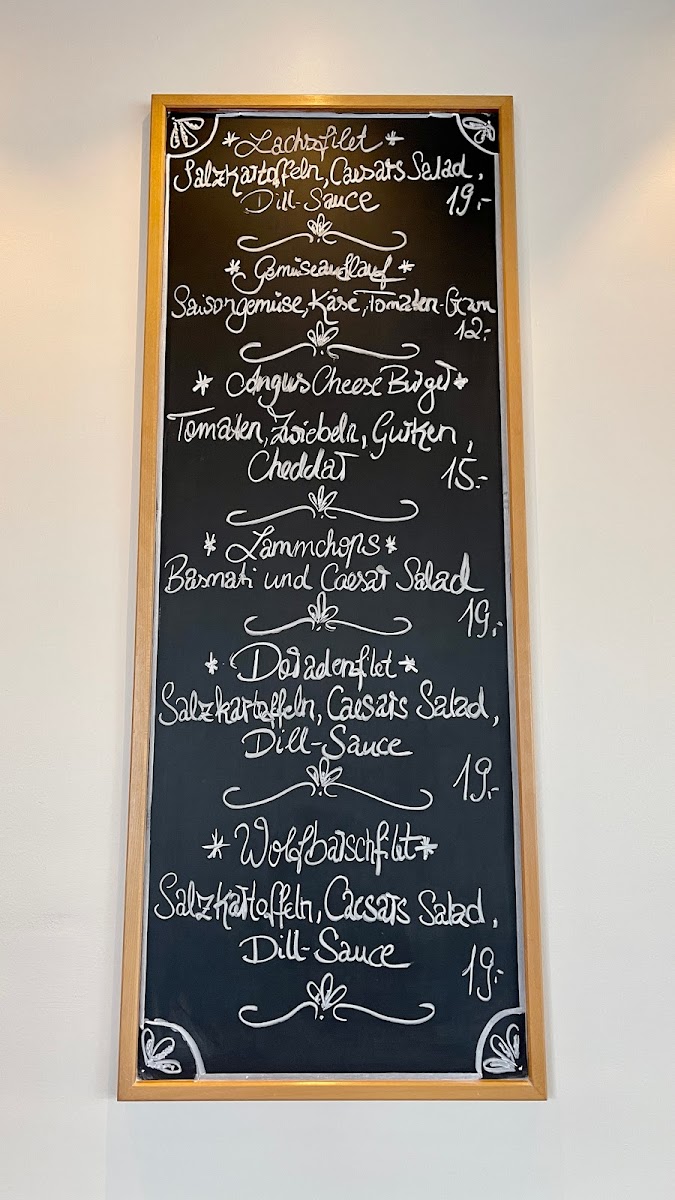 *Lachsfilet*
Salzkartoffeln, Caesars Salad,
Dill-Sauce 19,-
*Gemüseauflauf*
Saisongemüse, Käse, Tomaten-
12,-
*Angus Cheese Burger*
Tomaten, Zwiebeln, Gurken,
Cheddar 15,-
*Lammchops*
Basmati und Caesar Salad
19,-
*Doradenfilet*
Salzkartoffeln, Caesars Salad,
Dill-Sauce
19,-
*Wolfbarschfilet*
Salzkartoffeln, Caesars Salad,
Dill-Sauce
19,-